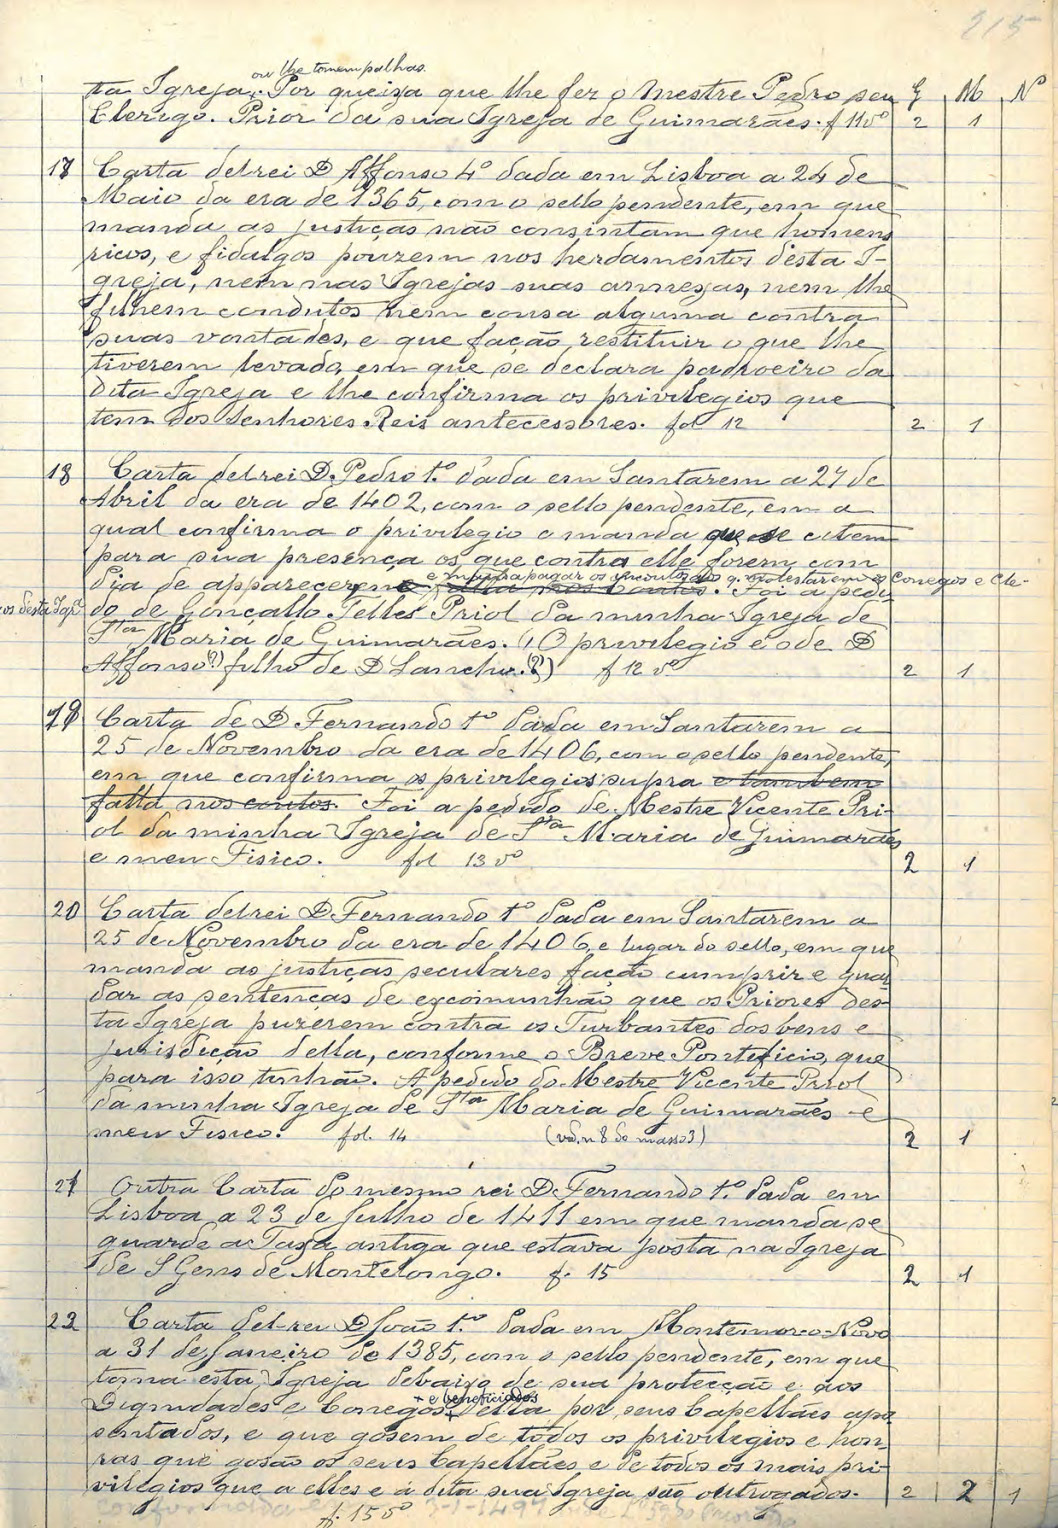 215
ou lhe tomem palhas.
ta Igreja. Por queixa que lhe fez o Mestre Pedro seu G M N
Clerigo. Prior da sua Igreja de Guimarães. f 11 vº 2 1
17 Carta delrei D Affonso 4º dada em Lisboa a 24 de
Maio da era de 1365, com o sello pendente, em que
manda as justiças não consintam que homens
ricos, e fidalgos pouzem nos herdamentos desta I-
greja, nem nas Igrejas suas annexas, nem lhe
filhem condutos nem cousa alguma contra
suas vontades, e que fação restituir o que lhe
tiverem levado, em que se declara padroeiro da
dita Igreja e lhe confirma os privilegios que
tem dos Senhores Reis antecessores. fol 12 2 1
18 Carta delrei D. Pedro 1.º dada em Santarem a 27 de
Abril da era de 1402, com o sello pendente, em a
qual confirma o privilegio e manda que se citem
para sua presença os que contra elle forem com
e manda pagar os q. molestarem os Conegos e Cle-
dia de apparecerem e falta nos Contos. Foi a pedi
cos desta Igrª
do de Gonçallo Telles Priol da minha Igreja de
Sta Maria de Guimarães. (O privilegio é o de D
Affonso(?) filho de D Sancho.(?)) f 12 vº 2 1
19 Carta de D Fernando 1º dada em Santarem a
25 de Novembro da era de 1406, com o sello pendente,
em que confirma os privilegios supra e tambem
falta nos contos. Foi a pedido de Mestre Vicente Pri-
ol da minha Igreja de Sta Maria de Guimarães
e meu Fisico. fol 13 vº 2 1
20 Carta delrei D Fernando 1º dada em Santarem a
25 de Novembro da era de 1406, e lugar do sello, em que
manda as justiças seculares fação cumprir e guar
dar as sentenças de excomunhão que os Priores des-
ta Igreja puzerem contra os Turbantes dos bens e
jurisdição della, conforme o Breve Pontificio, que
para isso tinhão. A pedido do Mestre Vicente Priol
da minha Igreja de Sta Maria de Guimarães e
meu Fisico. fol. 14 (vid. n 8 do masso 3) 2 1
21 Outra Carta do mesmo rei D. Fernando 1.º dada em
Lisboa a 23 de Julho de 1411 em que manda se
guarde a Taxa antiga que estava posta na Igreja
de S Gens de Montelongo. f. 15 2 1
22 Carta del-rei D João 1.º dada em Montemor-o-Novo
a 31 de Janeiro de 1385, com o sello pendente, em que
toma esta Igreja debaixo de sua protecção e aos
+ e beneficiados
Dignidades e Conegos + della por seus Capellães apo
sentados, e que gosem de todos os privilegios e hon-
ras que gosão os seus Capellães e de todos os mais pri-
vilegios que a elles e á dita sua Igreja são outrogados. 2 2 1
f. 15 vº